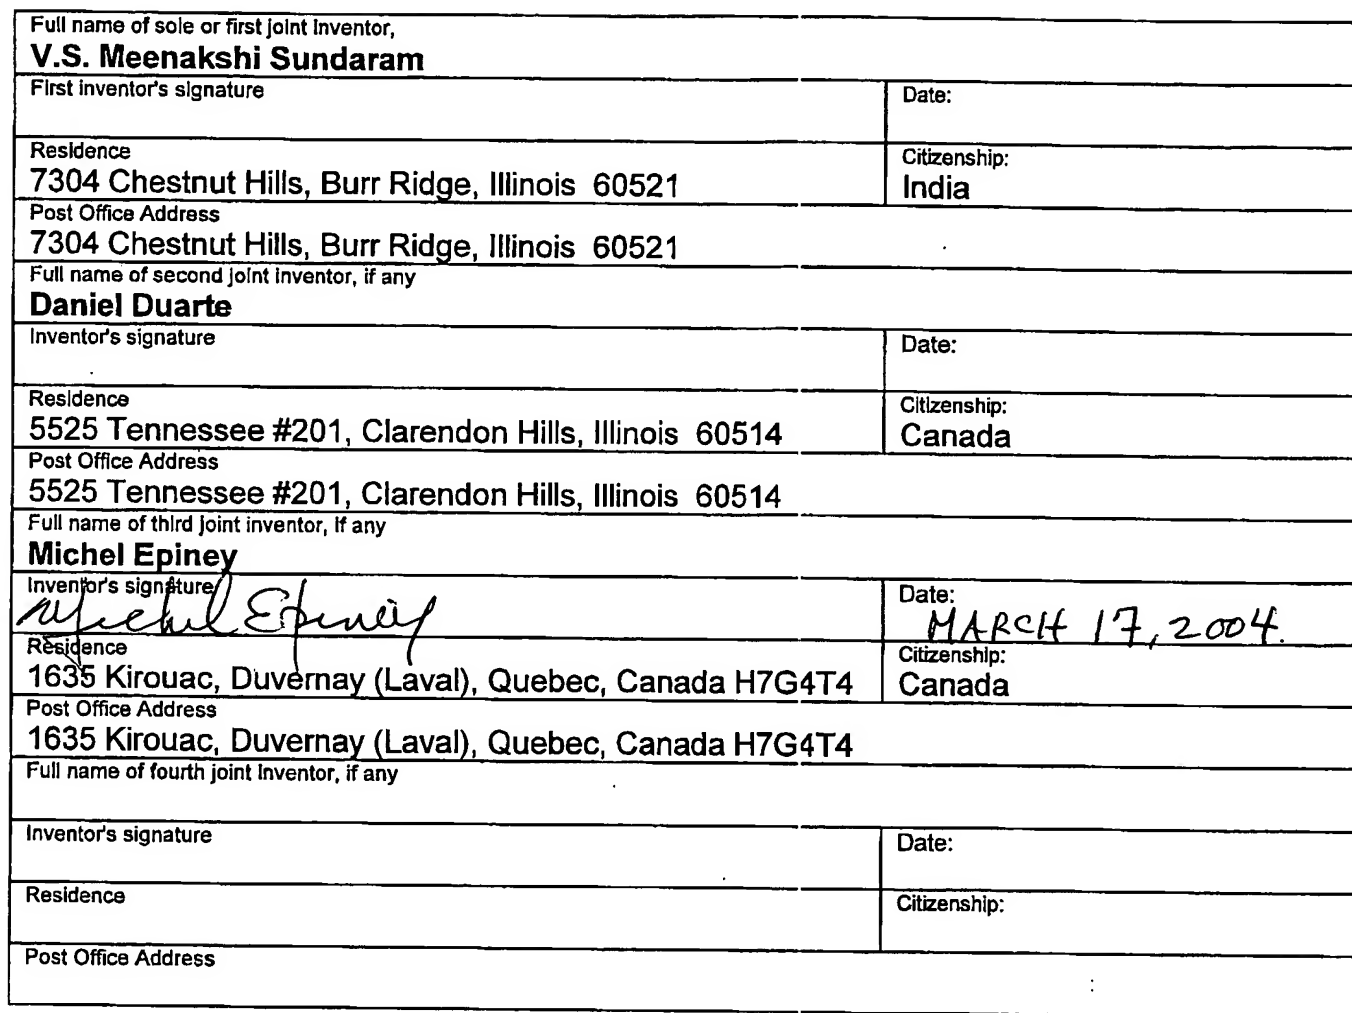 Full name of sole or first joint inventor,
V.S. Meenakshi Sundaram
First inventor's signature
Date:
Residence
7304 Chestnut Hills, Burr Ridge, Illinois 60521
Citizenship:
India
Post Office Address
7304 Chestnut Hills, Burr Ridge, Illinois 60521
Full name of second joint inventor, if any
Daniel Duarte
Inventor's signature
Date:
Residence
5525 Tennessee #201, Clarendon Hills, Illinois 60514
Citizenship:
Canada
Post Office Address
5525 Tennessee #201, Clarendon Hills, Illinois 60514
Full name of third joint inventor, if any
Michel Epiney
Inventor's signature
Michel Epiney
Date:
MARCH 17, 2004.
Residence
1635 Kirouac, Duvernay (Laval), Quebec, Canada H7G4T4
Citizenship:
Canada
Post Office Address
1635 Kirouac, Duvernay (Laval), Quebec, Canada H7G4T4
Full name of fourth joint inventor, if any
Inventor's signature
Date:
Residence
Citizenship:
Post Office Address